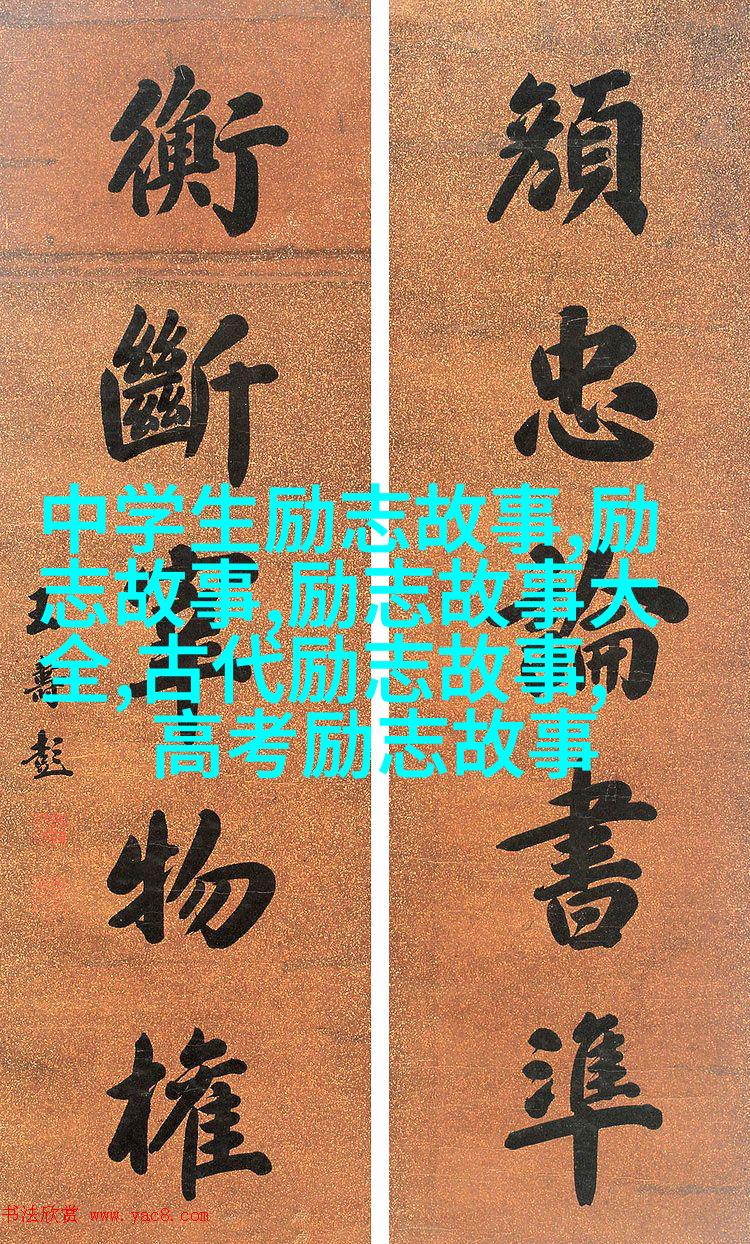 顏忠論書準
衡斷物權
壽彭
中学生励志故事,励
志故事,励志故事大
全,古代励志故事,
高考励志故事
书法欣赏 www.yac8.com